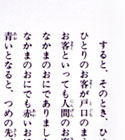 すると、そのとき、ひょ
ひとりのお客が戸口のま
お客といっても人間のお客
なかまのおにでありまし
なかまのおにでも赤いお
青いとなると、つめの先